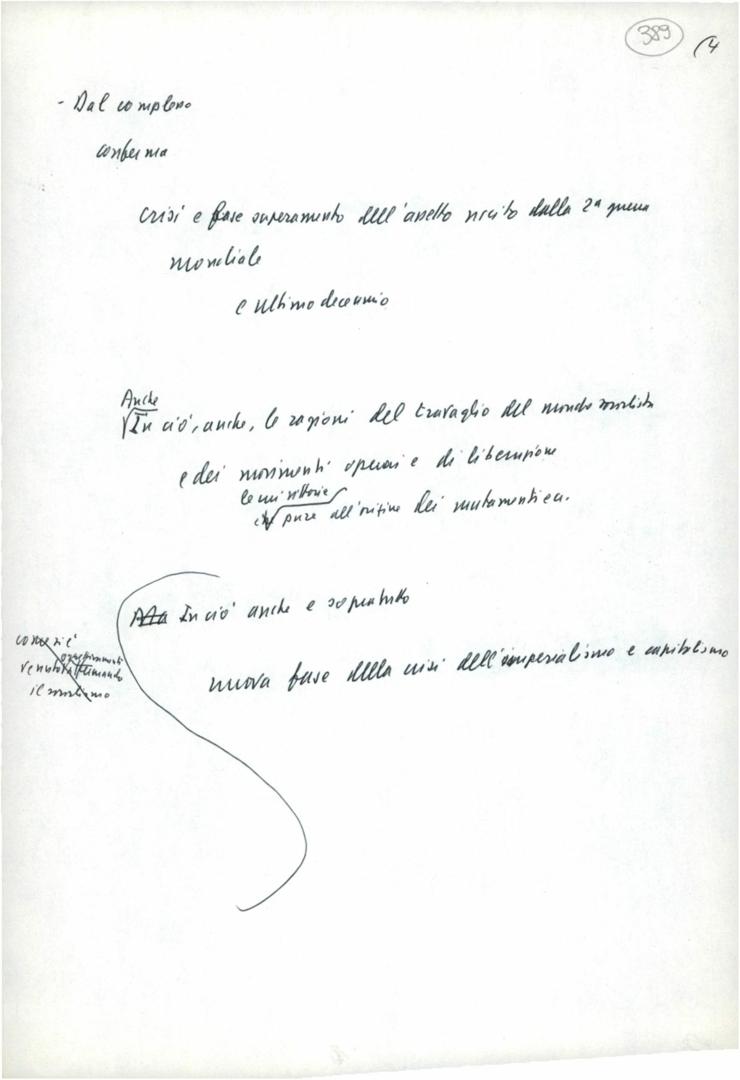 389
(4
- Dal complesso
conferma
crisi e fase superamento dell'assetto uscito dalla 2ª guerra
mondiale
e ultimo decennio
Anche
In ciò, anche, le ragioni del travaglio del mondo socialista
e dei movimenti operai e di liberazione
le cui vittorie
pure all'origine dei mutamenti ecc.
Ma In ciò anche e soprattutto
come si è
venuto affermando
il socialismo
nuova fase della crisi dell'imperialismo e capitalismo